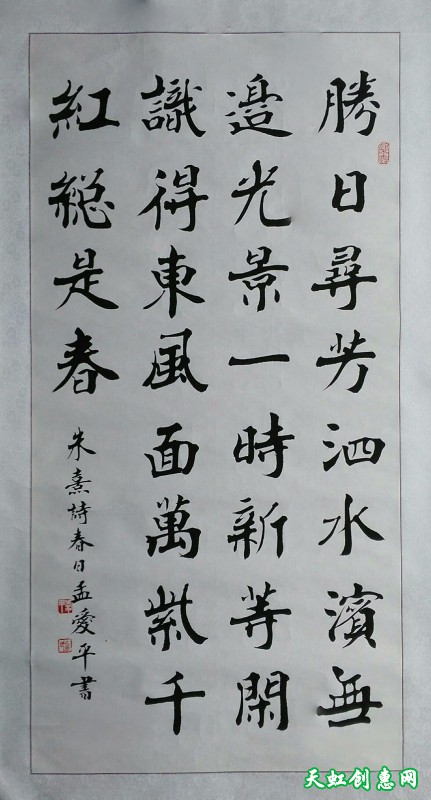 勝日尋芳泗水濱無
邉光景一時新等閑
識得東風面萬紫千
紅總是春
朱熹詩春日孟愛平書
天虹创惠网